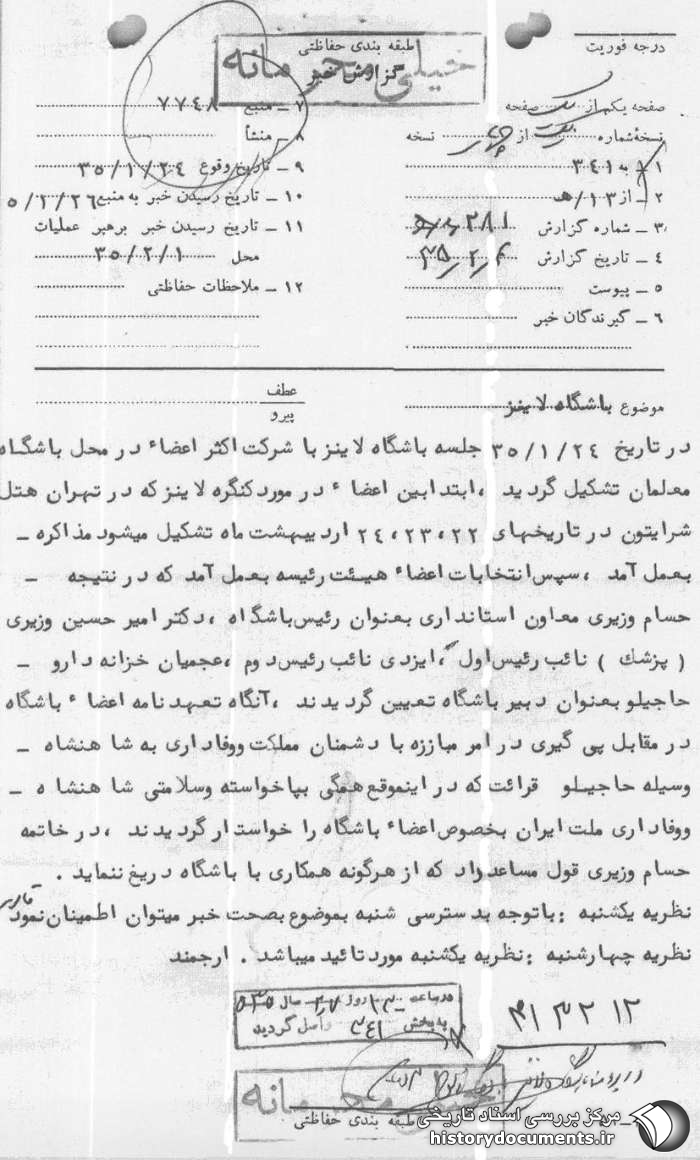 درجه فوریت
طبقه بندی حفاظتی
خیلی محرمانه
گزارش خبر
صفحه یکم از یک صفحه
نسخهٔ شماره از نسخه
۱ ـ به ۳۴۱
۲ ـ از ۱۳/هـ
۳ ـ شماره گزارش
۴ ـ تاریخ گزارش
۵ ـ پیوست
۶ ـ گیرندگان خبر
۷ ـ منبع ۷۷۴۸
۸ ـ منشأ
۹ ـ تاریخ وقوع ۳۵/۱/۲۴
۱۰ ـ تاریخ رسیدن خبر به منبع ۵/۱/۲۶
۱۱ ـ تاریخ رسیدن خبر برهبر عملیات
محل ۳۵/۲/۱
۱۲ ـ ملاحظات حفاظتی
موضوع باشگاه لاینز
عطف
پیرو
در تاریخ ۳۵/۱/۲۴ جلسه باشگاه لاینز با شرکت اکثر اعضاء در محل باشگاه
معلمان تشکیل گردید ، ابتدا بین اعضاء در مورد کنگره لاینز که در تهران هتل
شرایتون در تاریخهای ۲۲ ، ۲۳ ، ۲۴ اردیبهشت ماه تشکیل میشود مذاکره ـ
بعمل آمد ، سپس انتخابات اعضاء هیئت رئیسه بعمل آمد که در نتیجه ـ
حسام وزیری معاون استانداری بعنوان رئیس باشگاه ، دکتر امیر حسین وزیری
( پزشک ) نائب رئیس اول ، ایزدی نائب رئیس دوم ، عجمیان خزانه دار و ـ
حاجیلو بعنوان دبیر باشگاه تعیین گردیدند ، آنگاه تعهدنامه اعضاء باشگاه
در مقابل پی گیری در امر مبارزه با دشمنان مملکت و وفاداری به شاهنشاه ـ
وسیله حاجیلو قرائت که در اینموقع همگی بپاخواسته وسلامتی شاهنشاه ـ
ووفاداری ملت ایران بخصوص اعضاء باشگاه را خواستار گردیدند ، در خاتمه
حسام وزیری قول مساعد داد که از هرگونه همکاری با باشگاه دریغ ننماید .
نظریه یکشنبه : با توجه بدسترسی شنبه بموضوع بصحت خبر میتوان اطمینان نمود
نظریه چهارشنبه : نظریه یکشنبه مورد تائید میباشد . ارجمند
در ساعت روز سال
به بخش ۳۴۱ واصل گردید
طبقه بندی حفاظتی
مرکز بررسی اسناد تاریخی
historydocuments.ir